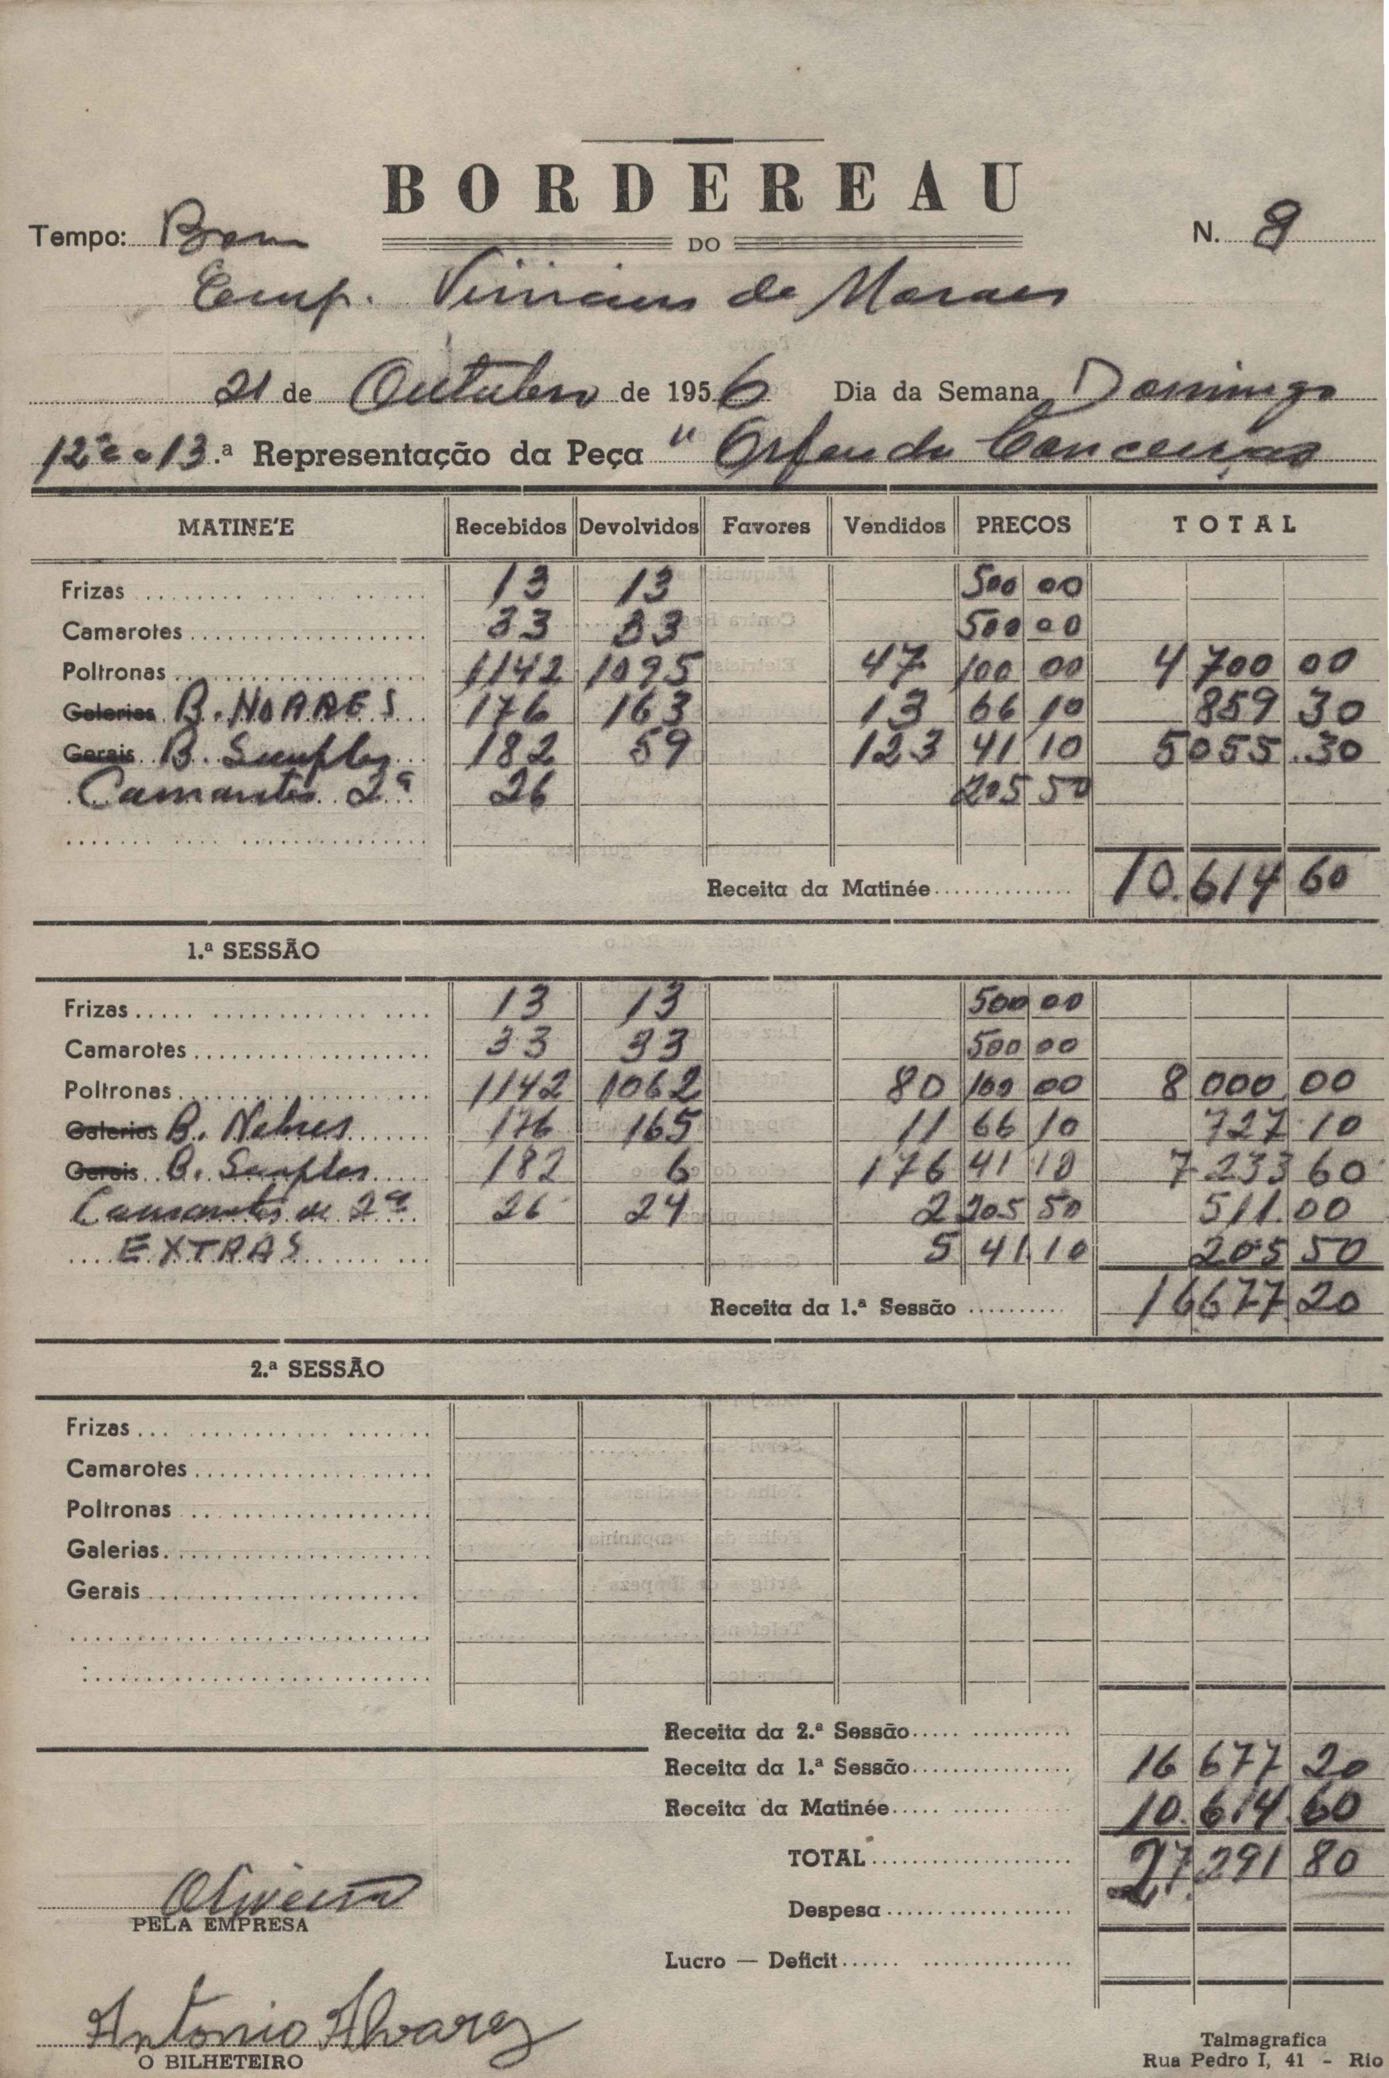 BORDEREAU
Tempo: Bom
DO
N. 8
Emp. Vinicius de Moraes
21 de Outubro de 1956 Dia da Semana Domingo
12ª e 13.ª Representação da Peça "Orfeu da Conceição
MATINE'E Recebidos Devolvidos Favores Vendidos PREÇOS TOTAL
Frizas 13 13 500 00
Camarotes 33 33 500 00
Poltronas 1142 1095 47 100 00 4 700 00
Galerias B. NOBRES 176 163 13 66 10 859 30
Gerais B. Simples 182 59 123 41 10 5055.30
Camarotes 2ª 26 205 50
Receita da Matinée 10.614 60
1.ª SESSÃO
Frizas 13 13 500 00
Camarotes 33 33 500 00
Poltronas 1142 1062 80 100 00 8 000.00
Galerias B. Nobres 176 165 11 66 10 727 10
Gerais B. Simples 182 6 176 41 10 7 233 60
Camarotes de 2ª 26 24 2 205 50 511.00
EXTRAS 5 41.10 205 50
Receita da 1.ª Sessão 16677.20
2.ª SESSÃO
Frizas
Camarotes
Poltronas
Galerias
Gerais
Receita da 2.ª Sessão
Receita da 1.ª Sessão 16 677 20
Receita da Matinée 10.614.60
TOTAL 27.291 80
Oliveira
PELA EMPRESA
Despesa
Lucro — Deficit
Antonio Alvarez
O BILHETEIRO
Talmagrafica
Rua Pedro I, 41 - Rio